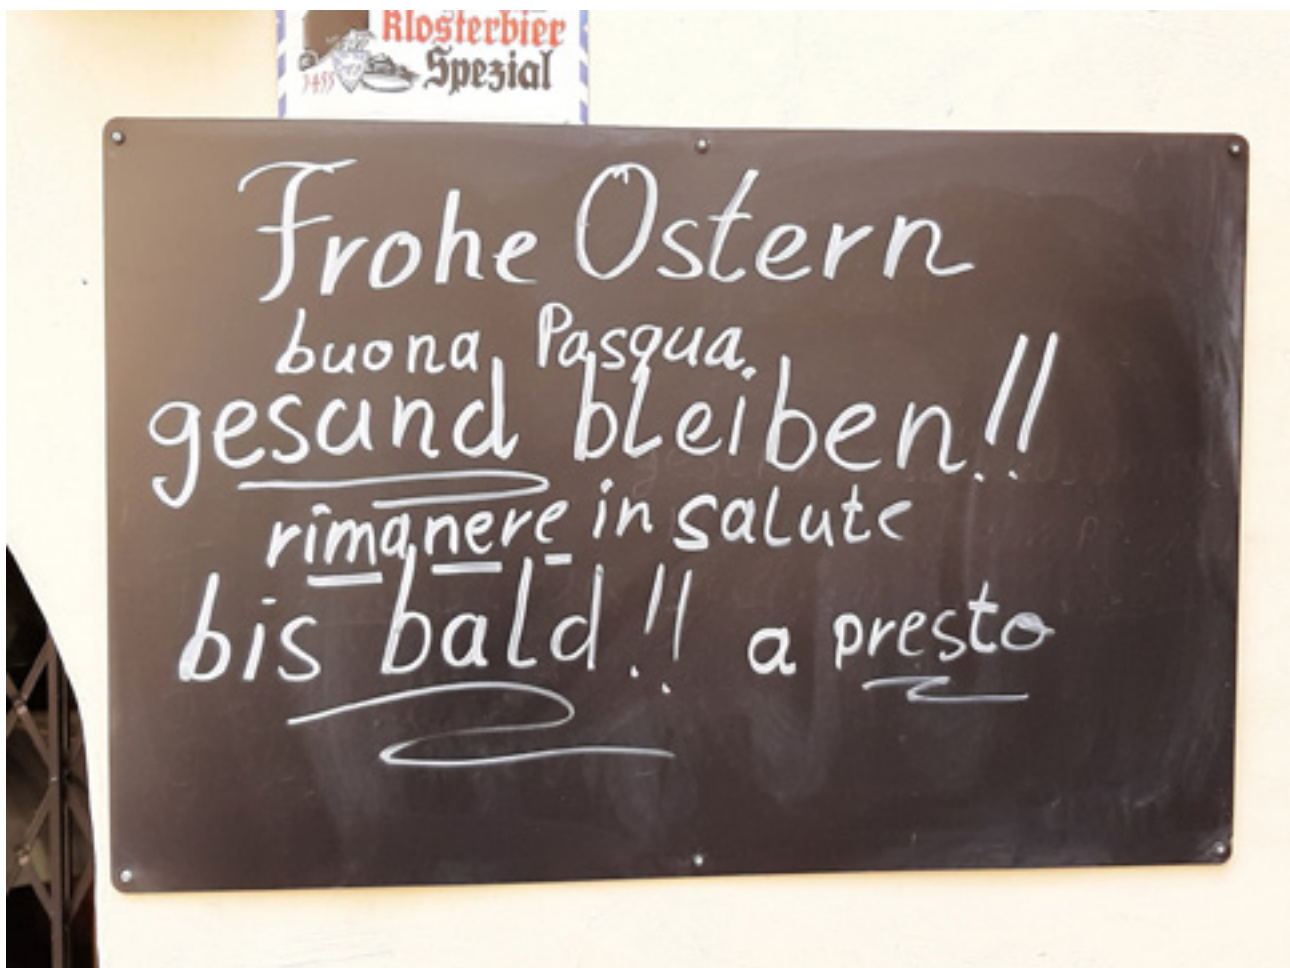 Klosterbier
Spezial
1455
Frohe Ostern
buona Pasqua
gesund bleiben!!
rimanere in salute
bis bald!! a presto